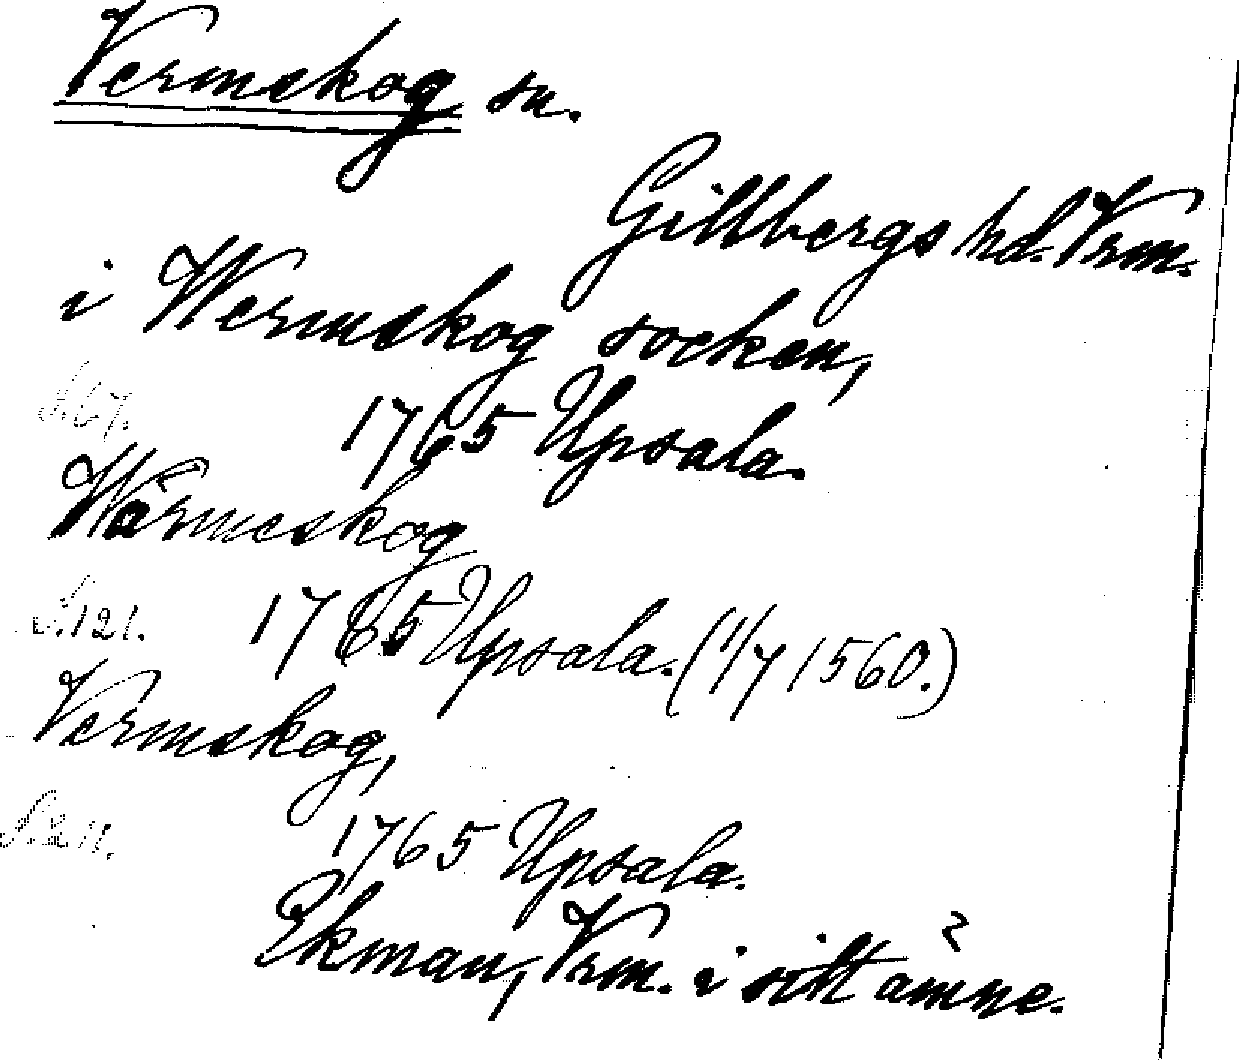 Vermskog sn.
Gillbergs hd. Vrm.
i Wermskog socken,
S. 67. 1765 Upsala.
Wärmeskog
S. 121. 1765 Upsala. (1/7 1560.)
Vermskog,
S. 211. 1765 Upsala.
Ekman, Vrm. i sitt ämne.